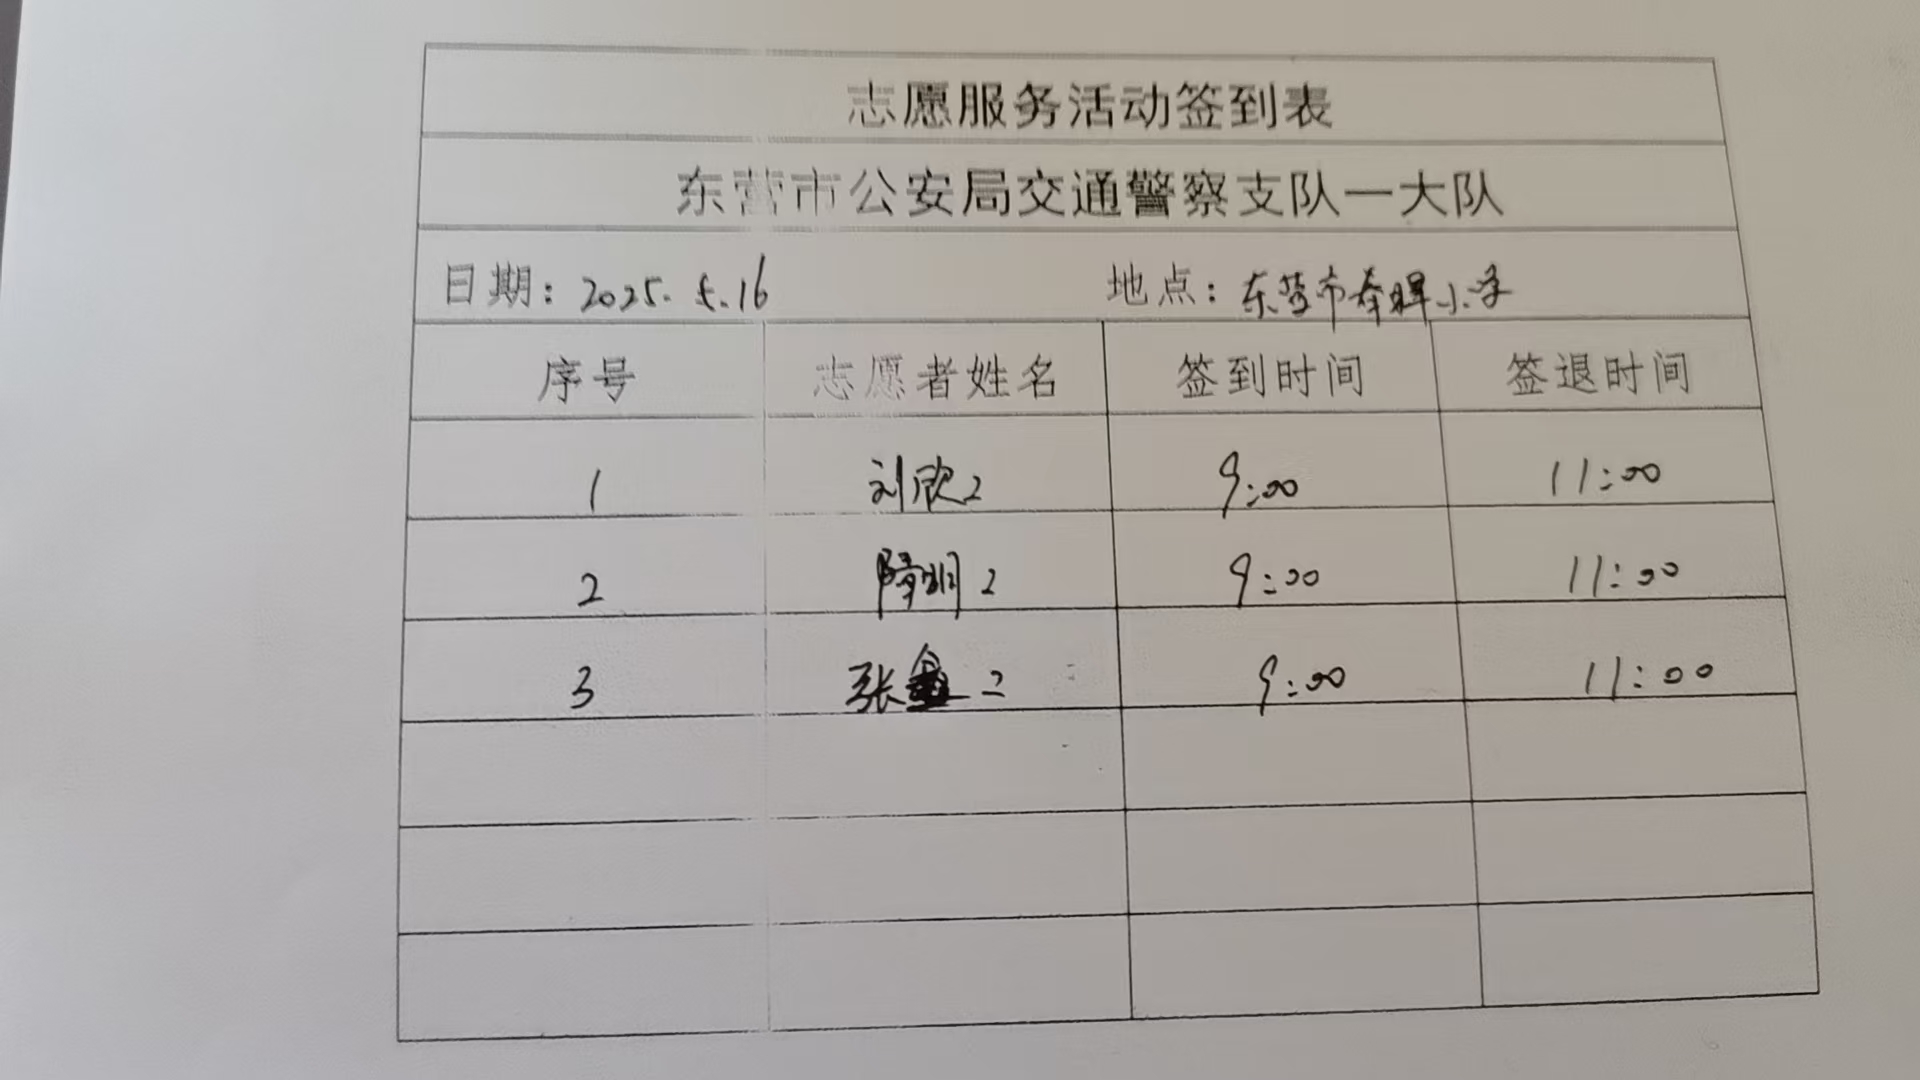 志愿服务活动签到表
东营市公安局交通警察支队一大队
日期：2025.5.16 地点：东营市春晖小学
序号 志愿者姓名 签到时间 签退时间
1 刘欣2 9:00 11:00
2 明2 9:00 11:00
3 张 2 9:00 11:00